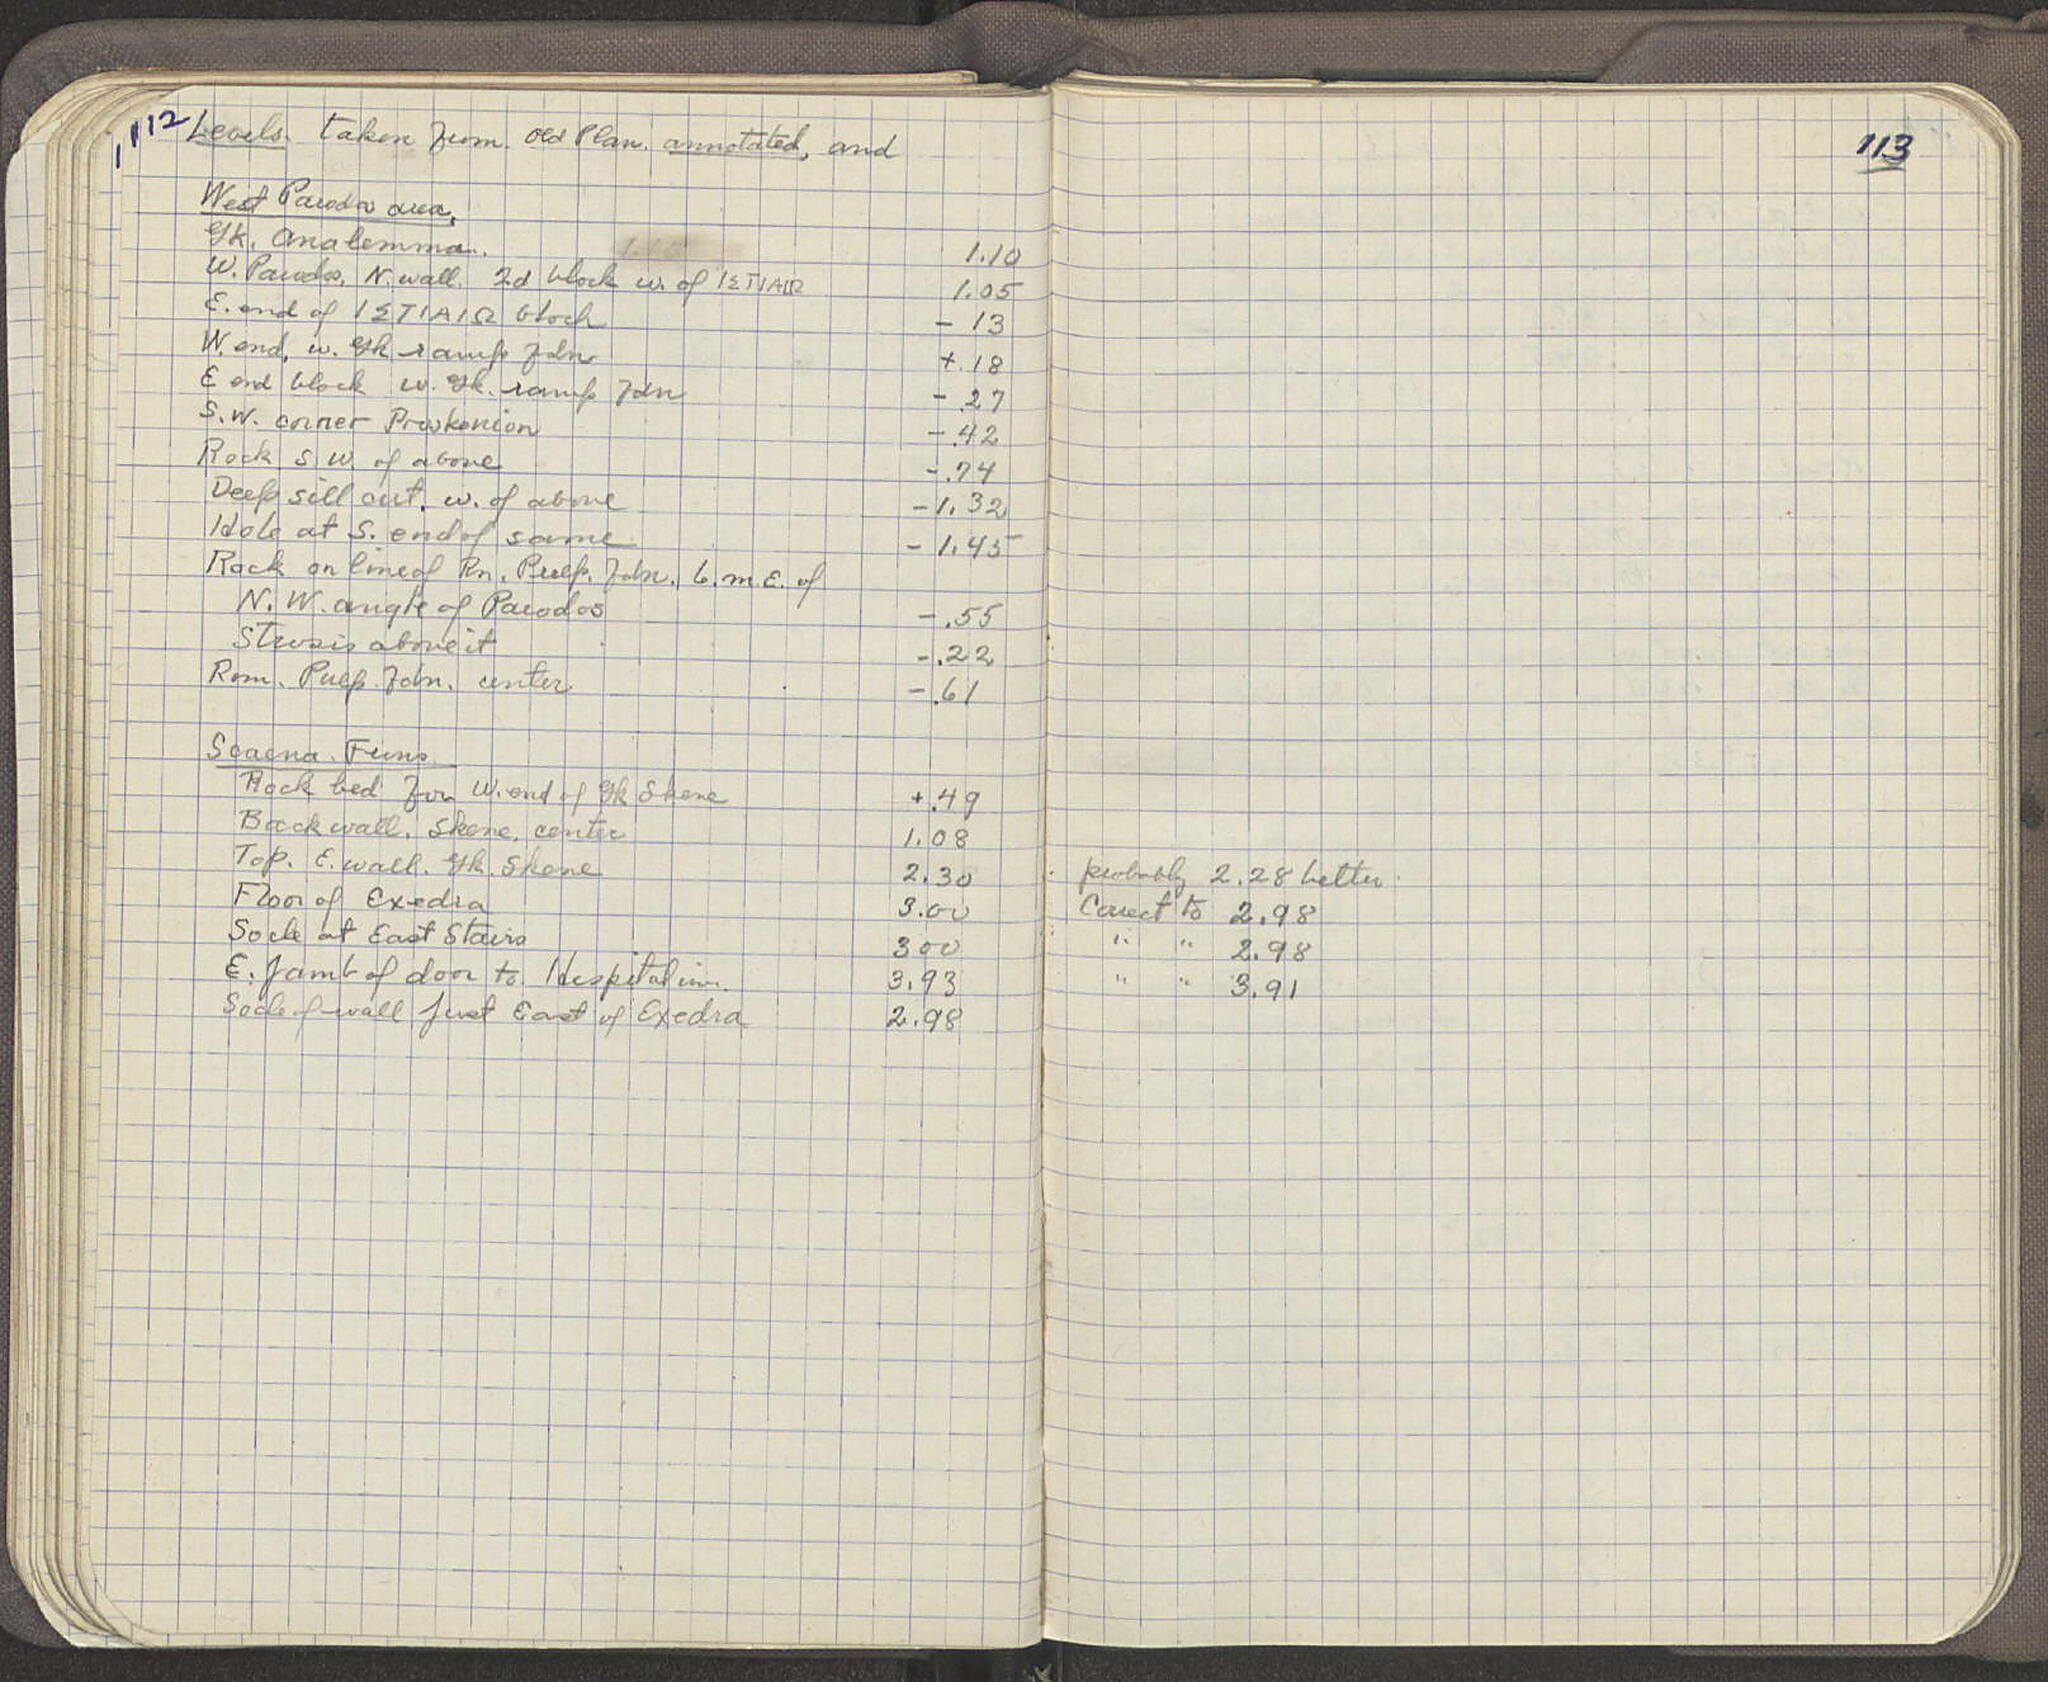 112
Levels. taken from. old Plan. annotated, and
West Parodos area.
Gk. Analemma. 1.10
W. Parodos, N. wall. 2d block w. of ΙΣΤΙΑΙΩ 1.05
E. end of ΙΣΤΙΑΙΩ block - 13
W. end, w. Gk ramp fdn +.18
E end block w. Gk. ramp fdn -.27
S.W. corner Proskenion -.42
Rock S.W. of above -.74
Deep sill cut, w. of above -1.32
Hole at S. end of same -1.45
Rock on line of Rn. Pulp. fdn. 6.m.E. of
N.W. angle of Parodos -.55
Strosis above it -.22
Rom. Pulp. fdn. center -.61
Scaena Frons
Rock bed for W. end of Gk Skene +.49
Back wall. Skene, center 1.08
Top. E. wall. Gk. Skene 2.30
Floor of Exedra 3.00
Socle at East Stairs 300
E. Jamb of door to Hospitalium. 3.93
Socle of wall just East of Exedra 2.98
113
probably 2.28 better.
Correct to 2.98
" " 2.98
" " 3.91